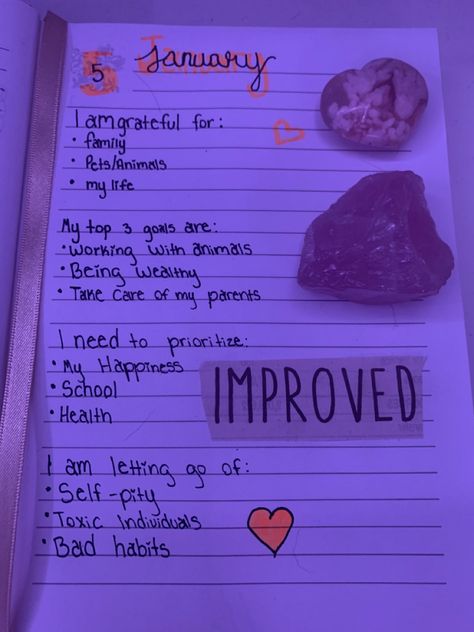 5 January
I am grateful for:
• family
• Pets/Animals
• my life
My top 3 goals are:
• Working with animals
• Being wealthy
• Take care of my parents
I need to prioritize:
• My Happiness
• School
• Health
IMPROVED
I am letting go of:
• Self-pity
• Toxic Individuals
• Bad habits